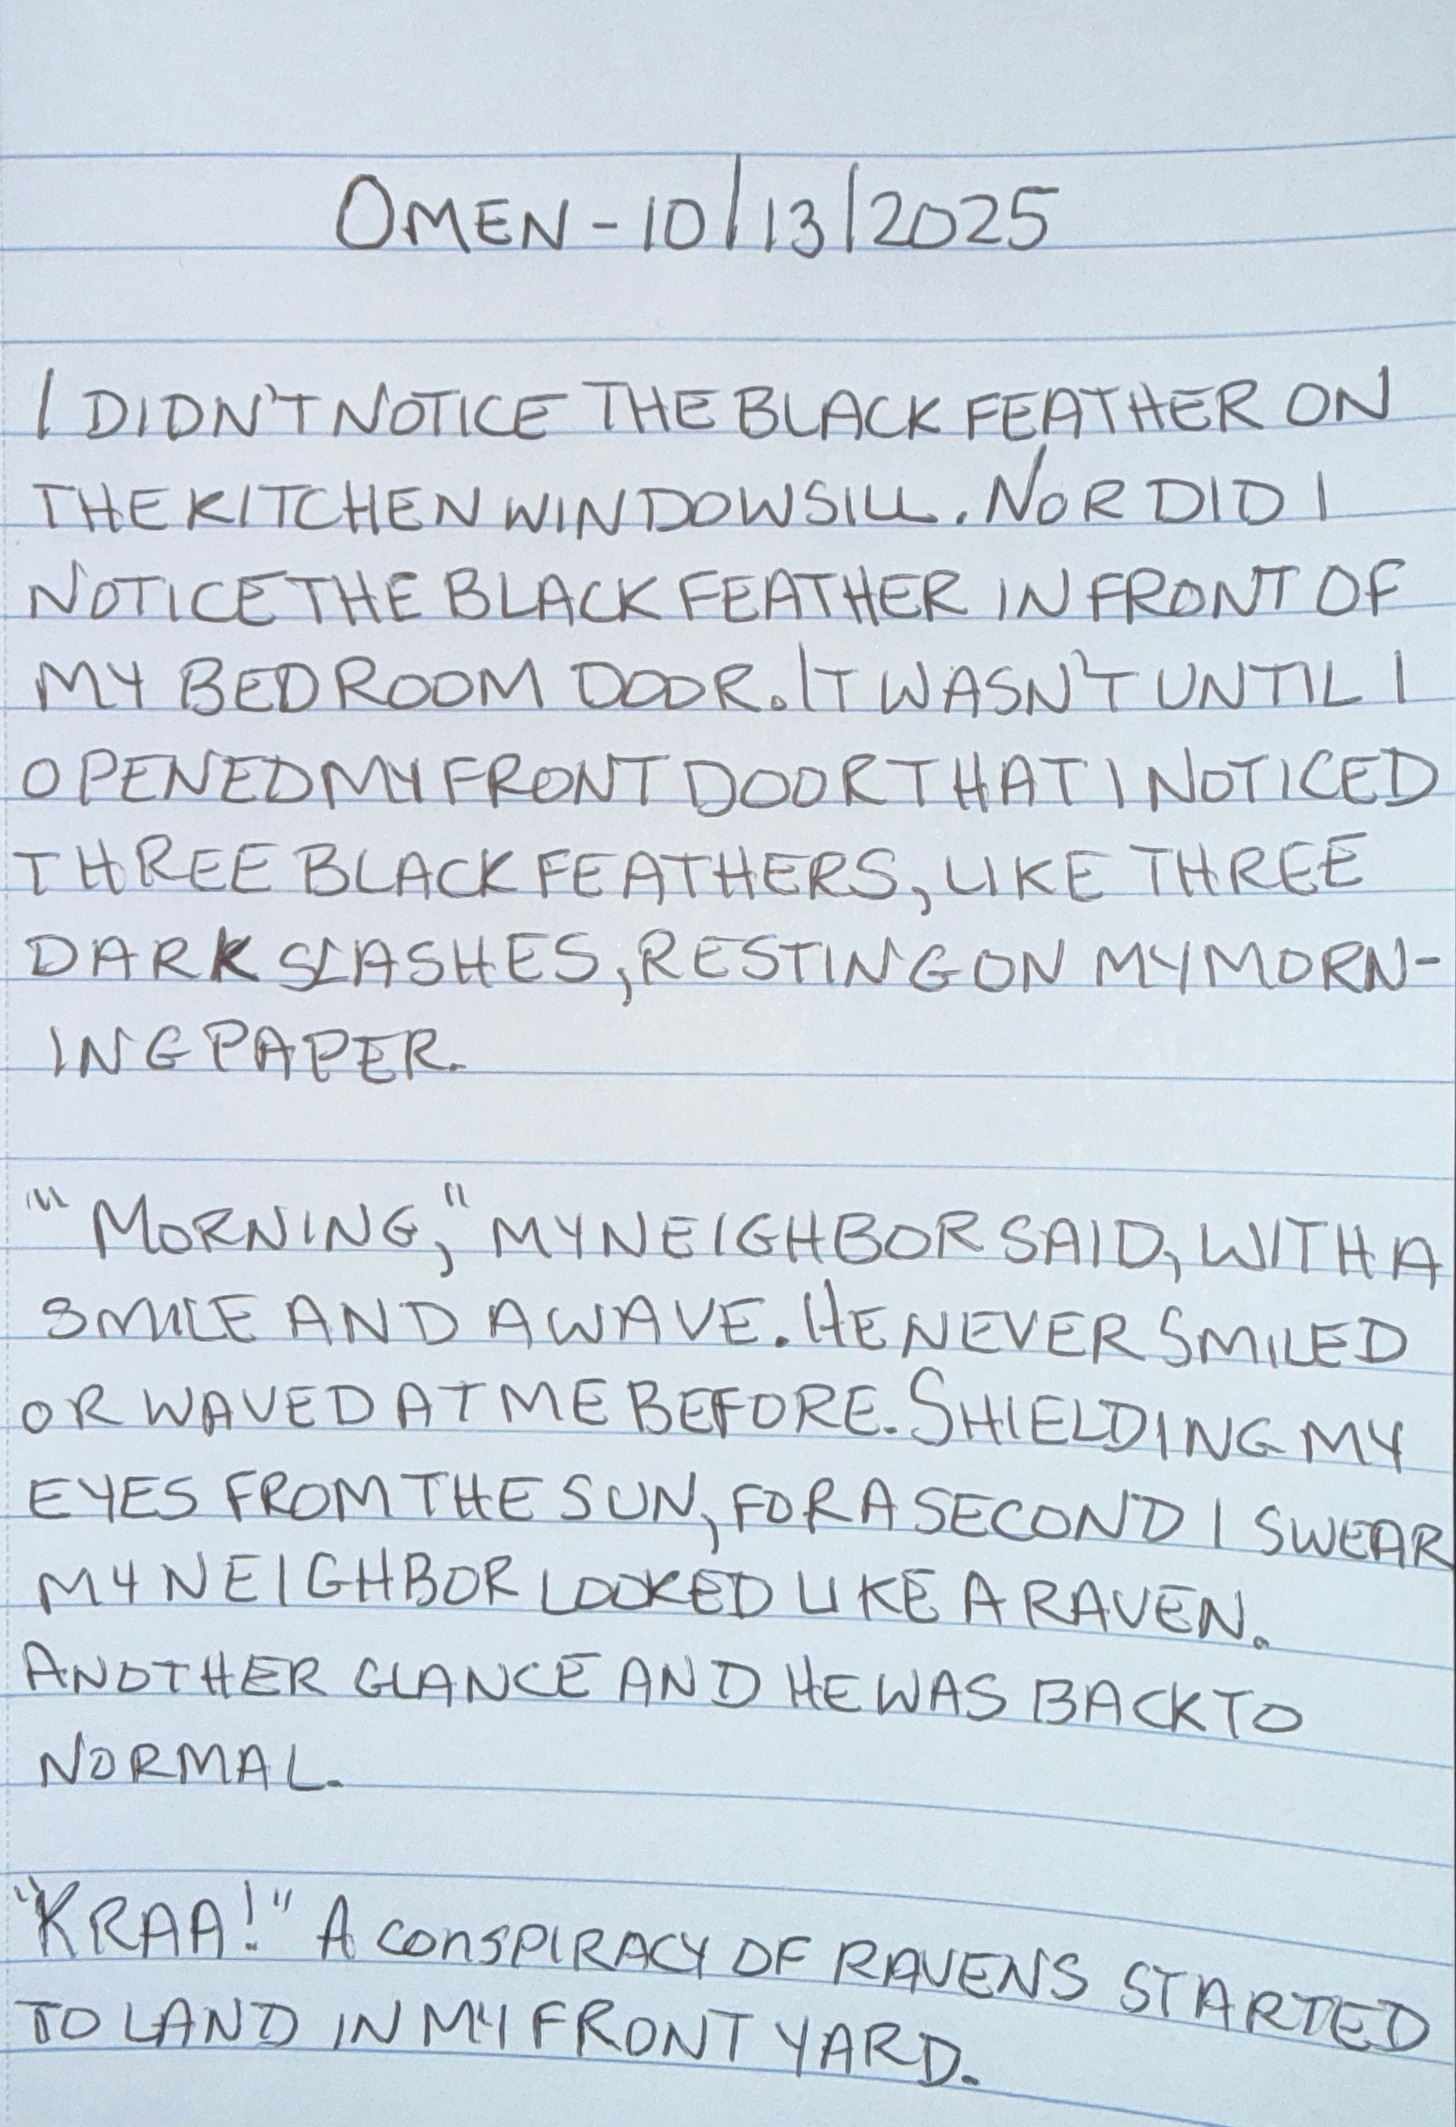 OMEN - 10/13/2025
I DIDN'T NOTICE THE BLACK FEATHER ON
THE KITCHEN WINDOWSILL. NOR DID I
NOTICE THE BLACK FEATHER IN FRONT OF
MY BEDROOM DOOR. IT WASN'T UNTIL I
OPENED MY FRONT DOOR THAT I NOTICED
THREE BLACK FEATHERS, LIKE THREE
DARK SLASHES, RESTING ON MY MORN-
ING PAPER.
"'MORNING," MY NEIGHBOR SAID, WITH A
SMILE AND A WAVE. HE NEVER SMILED
OR WAVED AT ME BEFORE. SHIELDING MY
EYES FROM THE SUN, FOR A SECOND I SWEAR
MY NEIGHBOR LOOKED LIKE A RAVEN.
ANOTHER GLANCE AND HE WAS BACK TO
NORMAL.
"KRAA!" A CONSPIRACY OF RAVENS STARTED
TO LAND IN MY FRONT YARD.